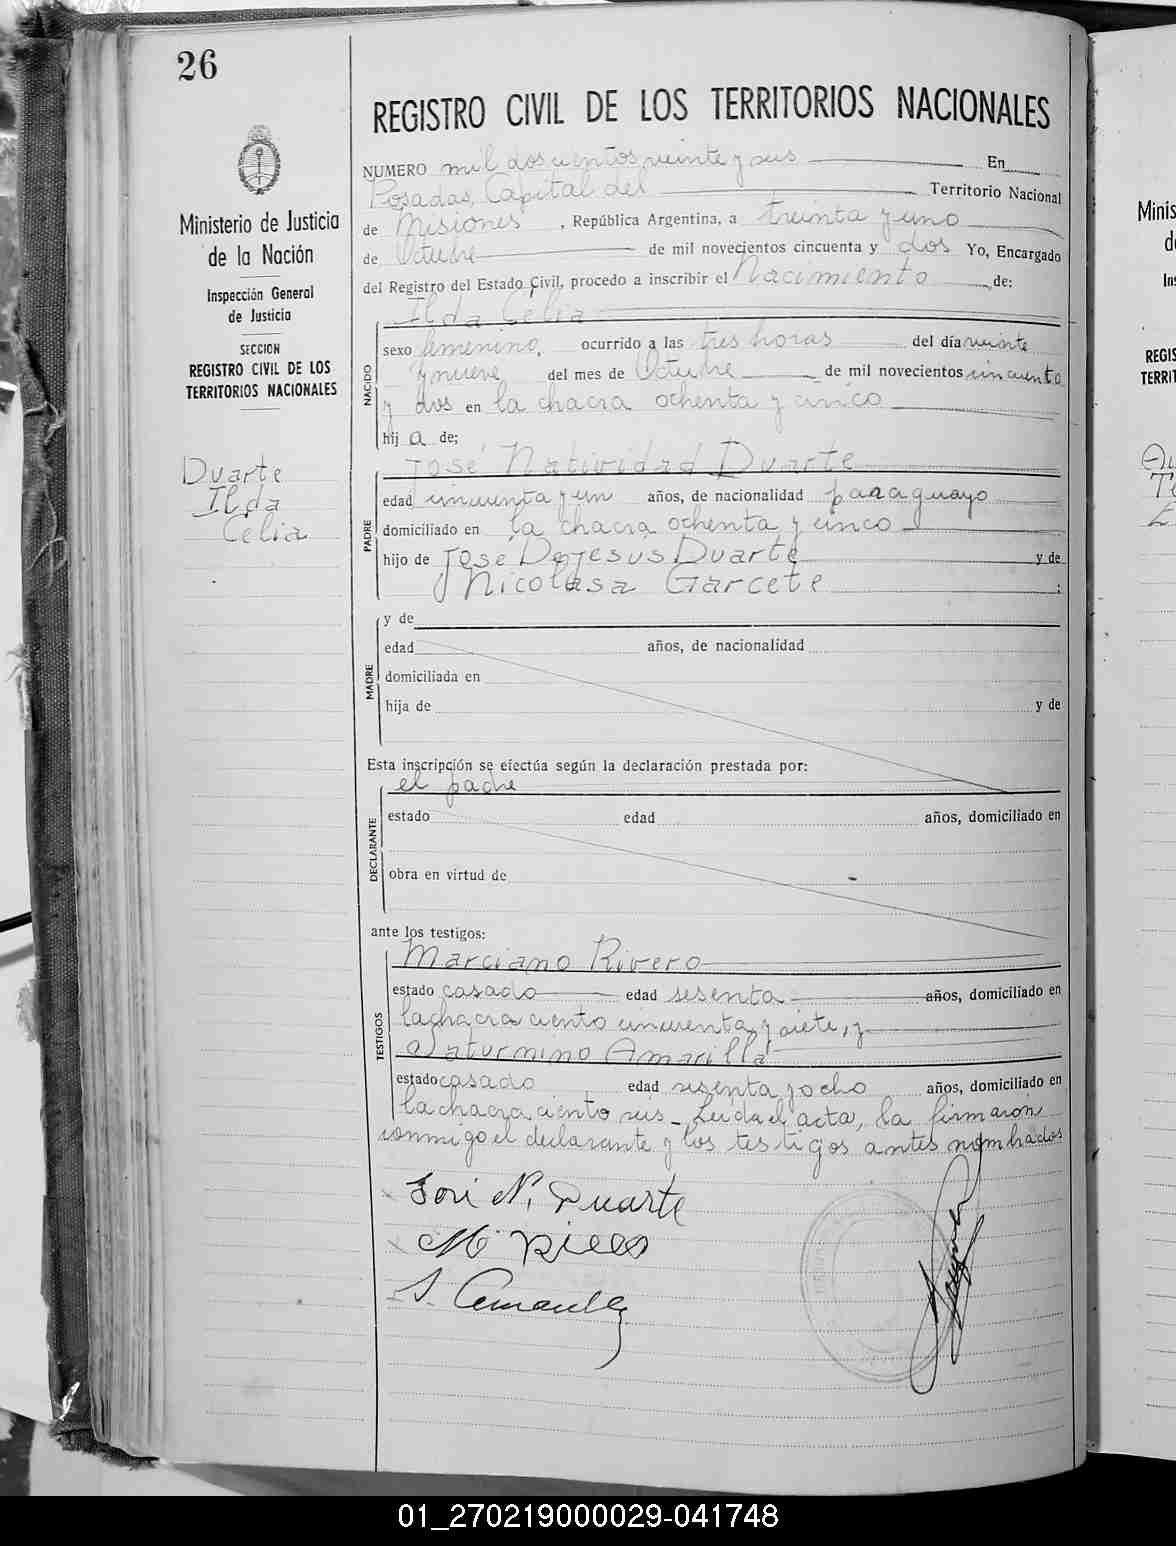 26
REGISTRO CIVIL DE LOS TERRITORIOS NACIONALES
Ministerio de Justicia
de la Nación
Inspección General
de Justicia
SECCION
REGISTRO CIVIL DE LOS
TERRITORIOS NACIONALES
Duarte
Ilda
Celia
NUMERO mil doscientos veinte y seis En
Posadas, Capital del Territorio Nacional
de Misiones, República Argentina, a treinta y uno
de Octubre de mil novecientos cincuenta y dos Yo, Encargado
del Registro del Estado Civil, procedo a inscribir el Nacimiento de:
Ilda Celia
NACIDO
sexo femenino, ocurrido a las tres horas del día veinte
y nueve del mes de Octubre de mil novecientos cincuenta
y dos en la chacra ochenta y cinco
hij a de;
José Natividad Duarte
PADRE
edad cincuenta y un años, de nacionalidad paraguayo
domiciliado en la chacra ochenta y cinco
hijo de José DeJesús Duarte y de
Nicolasa Garcete ;
MADRE
y de
edad años, de nacionalidad
domiciliada en
hija de y de
Esta inscripción se efectúa según la declaración prestada por:
el padre
DECLARANTE
estado edad años, domiciliado en
obra en virtud de
ante los testigos:
Marciano Rivero
TESTIGOS
estado casado edad sesenta años, domiciliado en
la chacra ciento cincuenta y siete, y
a Saturnino Amarilla
estado casado edad sesenta y ocho años, domiciliado en
la chacra ciento seis - Leida el acta, la firmaron
conmigo el declarante y los testigos antes nombrados
José N. Duarte
S. Amarilla
Minis
REGIS
TERRIT
01_270219000029-041748